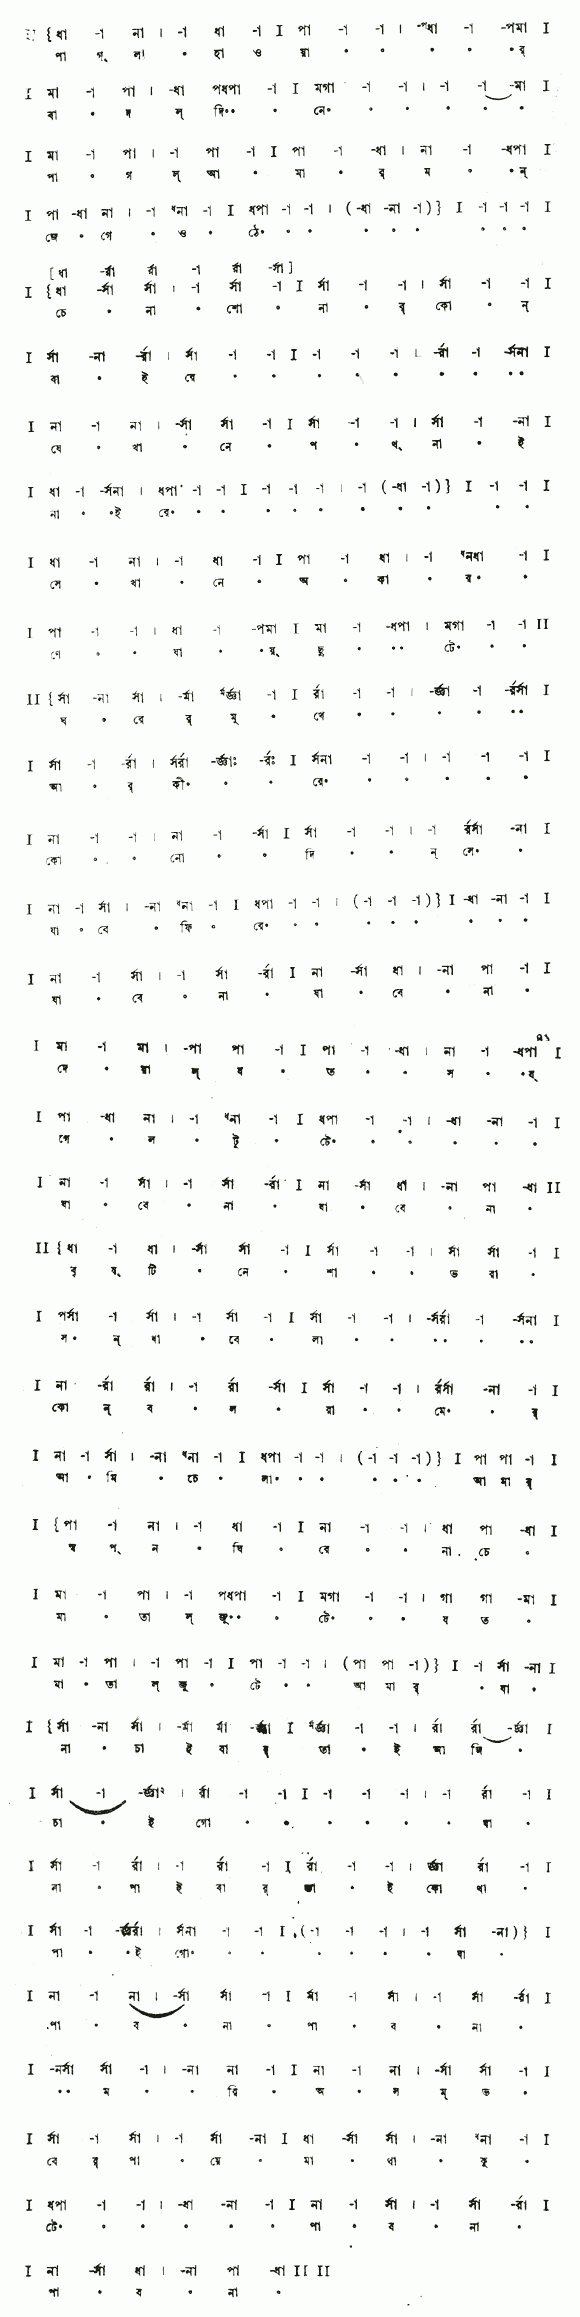 II {ধা -া না । -া ধা -া I পা -া -া । -পধা -া -পমা I
পা গ্ লা • হা ও য়া • • • • র্
I মা -া পা । -ধা পধপা -া I মগা -া -া । -া -া -মা I
বা • দ ল্ দি•• • নে• • • • • •
I মা -া পা । -া পা -া I পা -া -ধা । না -া -ধপা I
পা • গ ল্ আ • মা • র্ ম • ন্
I পা -ধা না । -া ধনা -া I ধপা -া -া । (-ধা -না -া)} I -া -া -া I
জে • গে • ও • ঠে• • • • • • • • •
[ধা -র্রা র্রা -া র্রা -র্সা]
I {ধা -র্সা র্সা । -া র্সা -া I র্সা -া -া । র্সা -া -া I
চে • না • শো • না • র্ কো • ন্
I র্সা -না -র্রা । র্সা -া -া I -া -া -া । -র্রা -া -র্সনা I
বা • ই রে • • • • • • • ••
I না -া না । -র্সা র্সা -া I র্সা -া -া । র্সা -া -না I
যে • খা • নে • প • থ্ না • ই
I ধা -া -র্সনা । ধপা -া -া I -া -া -া । -া (-ধা -া)} I -া -া I
না • •ই রে• • • • • • • • • • •
I ধা -া না । -া ধা -া I পা -া ধা । -া ধনধা -া I
সে • খা • নে • অ • কা • র• •
I পা -া -া । ধা -া -পমা I মা -া -ধপা । মগা -া -া II
ণে • • যা • •য়্ ছু • •• টে• • •
II {র্সা -না র্সা । -র্মা র্মর্জ্ঞা -া I র্রা -া -া । -র্জ্ঞা -া -র্রর্সা I
ঘ • রে র্ মু • খে • • • • ••
I র্সা -া -র্রা । র্সর্রা -র্জ্ঞাঃ -র্রঃ I র্সনা -া -া । -া -া -া I
আ • র্ কী• • • রে• • • • • •
I না -া -া । না -া -র্সা I র্সা -া -া । -া র্রর্সা -না I
কো • • নো • • দি • • ন্ সে• •
I না -া র্সা । -না ধনা -া I ধপা -া -া । (-া -া -া)} I -ধা -না -া I
যা • বে • ফি • রে• • • • • • • • •
I না -া র্সা । -া র্সা -র্রা I না -র্সা ধা । -না পা -া I
যা • বে • না • যা • বে • না •
I মা -া মা । -পা পা -া I পা -া -ধা । না -া -ধপা I
দে • য়া ল্ য • ত • • স • •ব্
I পা -ধা না । -া ধনা -া I ধপা -া -া । -ধা -না -া I
গে • ল • টু • টে• • • • • •
I না -া র্সা । -া র্সা -র্রা I না -র্সা ধা । -না পা -ধা II
যা • বে • না • যা • বে • না •
II {ধা -া ধা । -র্সা র্সা -া I র্সা -া -া । র্সা র্সা -া I
বৃ ষ্ টি • নে • শা • • ভ রা •
I পর্সা -া র্সা । -া র্সা -া I র্সা -া -া । -র্সর্রা -া -র্সনা I
স• ন্ ধ্যা • বে • লা • • •• • ••
I না -র্রা র্রা । -া র্রা -র্সা I র্সা -া -া । র্রর্সা -না -া I
কো ন্ ব • ল • রা • • মে• • র্
I না -া র্সা । -না ধনা -া I ধপা -া -া । (-া -া -া)} I পা পা -া I
আ • মি • চে • লা• • • • • • আ মা র্
I {পা -া না । -া ধা -া I না -া -া । ধা পা -ধা I
স্ব প্ ন • ঘি • রে • • না চে •
I মা -া পা । -া পধপা -া I মগা -া -া । গা গা -মা I
মা • তা ল্ জু•• • টে• • • য ত •
I মা -া পা । -া পা -া I পা -া -া । (পা পা -া)} I -া র্সা -না I
মা • তা ল্ জু • টে • • আ মা র্ • যা •
I {র্সা -না র্সা । -র্মা র্মা -র্জ্ঞা I র্মর্জ্ঞা -া -া । র্রা র্রা -র্জ্ঞা I
না • চা ই বা র্ তা • ই আ জি •
I র্সা -া -র্জ্ঞা । র্রা -া -া I -া -া -া । -া র্রা -া I
চা • ই গো • • • • • • যা •
I র্সা -া র্রা । -া র্রা -া I র্রা -া -া । র্জ্ঞা র্রা -া I
না • পা ই বা র্ তা • ই কো থা •
I র্সা -া -র্জ্ঞর্রা । র্সনা -া -া I (-া -া -া । -া র্সা -না)} I
পা • •ই গো• • • • • • • যা •
I না -া না । -র্সা র্সা -া I র্মা -া র্সা । -া র্সা -র্রা I
পা • ব • না • পা • ব • না •
I -নর্সা র্সা -া । -না না -া I না -া না । -র্সা র্সা -া I
•• ম • • রি • অ • স ম্ ভ •
I র্সা -া র্সা । -া র্সা -না I ধা -র্সা র্সা । -না ধনা -া I
বে র্ পা • য়ে • মা • থা • কু •
I ধপা -া -া । -ধা -না -া I না -া র্সা । -া র্সা -র্রা I
টে• • • • • • পা • ব • না •
I না -র্সা ধা । -না পা -ধা II II
পা • ব • না •